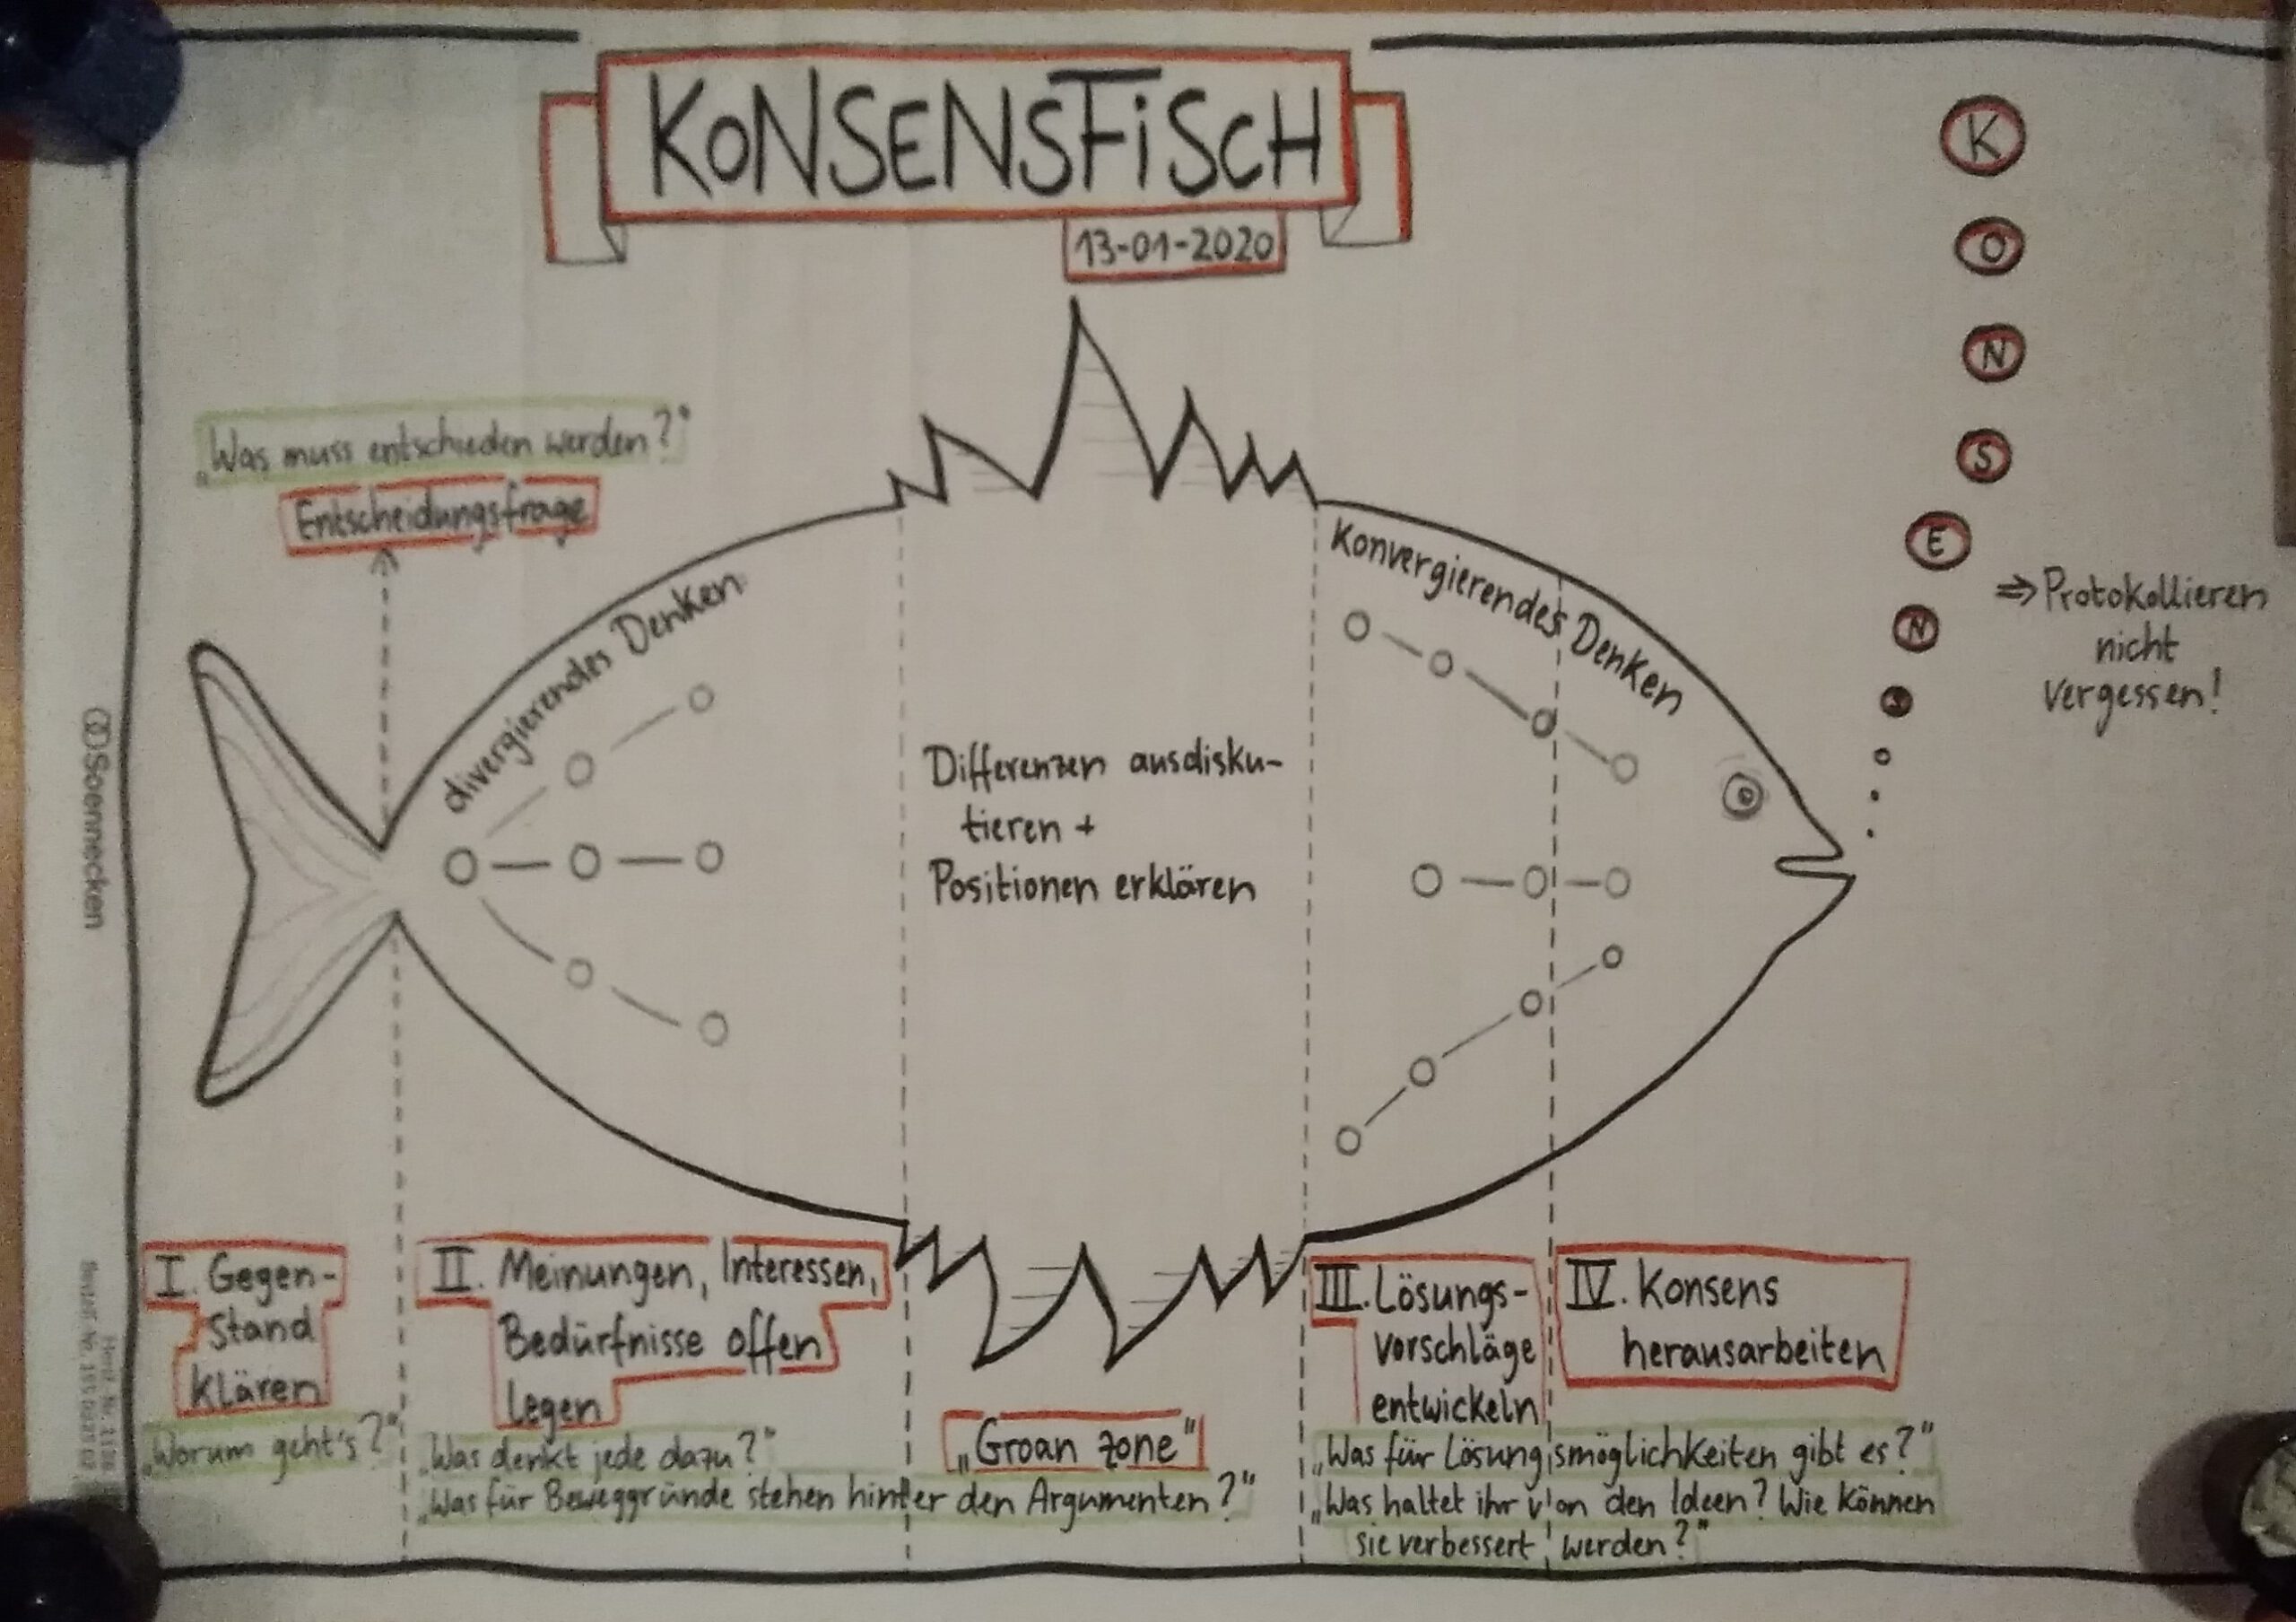 KONSENSFISCH
13-01-2020
K
O
N
S
E
N
S
⇒ Protokollieren
nicht
vergessen!
„Was muss entschieden werden?“
Entscheidungsfrage
divergierendes Denken
Konvergierendes Denken
Differenzen ausdisku-
tieren +
Positionen erklären
Soennecken
I. Gegen-
stand
klären
„Worum geht's?“
II. Meinungen, Interessen,
Bedürfnisse offen
legen
„Was denkt jede dazu?“
„Was für Beweggründe stehen hinter den Argumenten?“
„Groan zone“
III. Lösungs-
vorschläge
entwickeln
IV. Konsens
herausarbeiten
„Was für Lösungsmöglichkeiten gibt es?“
„Was haltet ihr von den Ideen? Wie können
sie verbessert werden?“